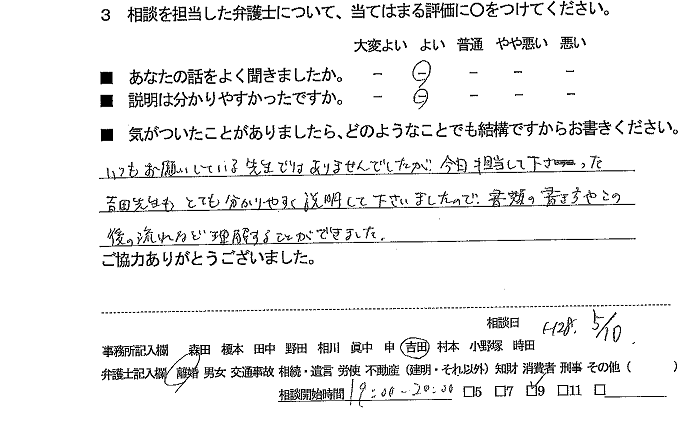 3 相談を担当した弁護士について、当てはまる評価に○をつけてください。
大変よい よい 普通 やや悪い 悪い
■ あなたの話をよく聞きましたか。 － － － － －
■ 説明は分かりやすかったですか。 － － － － －
■ 気がついたことがありましたら、どのようなことでも結構ですからお書きください。
いつもお願いしている先生ではありませんでしたが、今日担当して下さった
吉田先生も とても分かりやすく説明して下さいましたので、書類の書き方やこの
後の流れなど理解することができました。
ご協力ありがとうございました。
相談日 H28. 5/10.
事務所記入欄 森田 榎本 田中 野田 相川 眞中 申 吉田 村本 小野塚 時田
弁護士記入欄 離婚 男女 交通事故 相続・遺言 労使 不動産（建明・それ以外） 知財 消費者 刑事 その他（ ）
相談開始時間 19:00-20:00 □5 □7 □9 □11 □